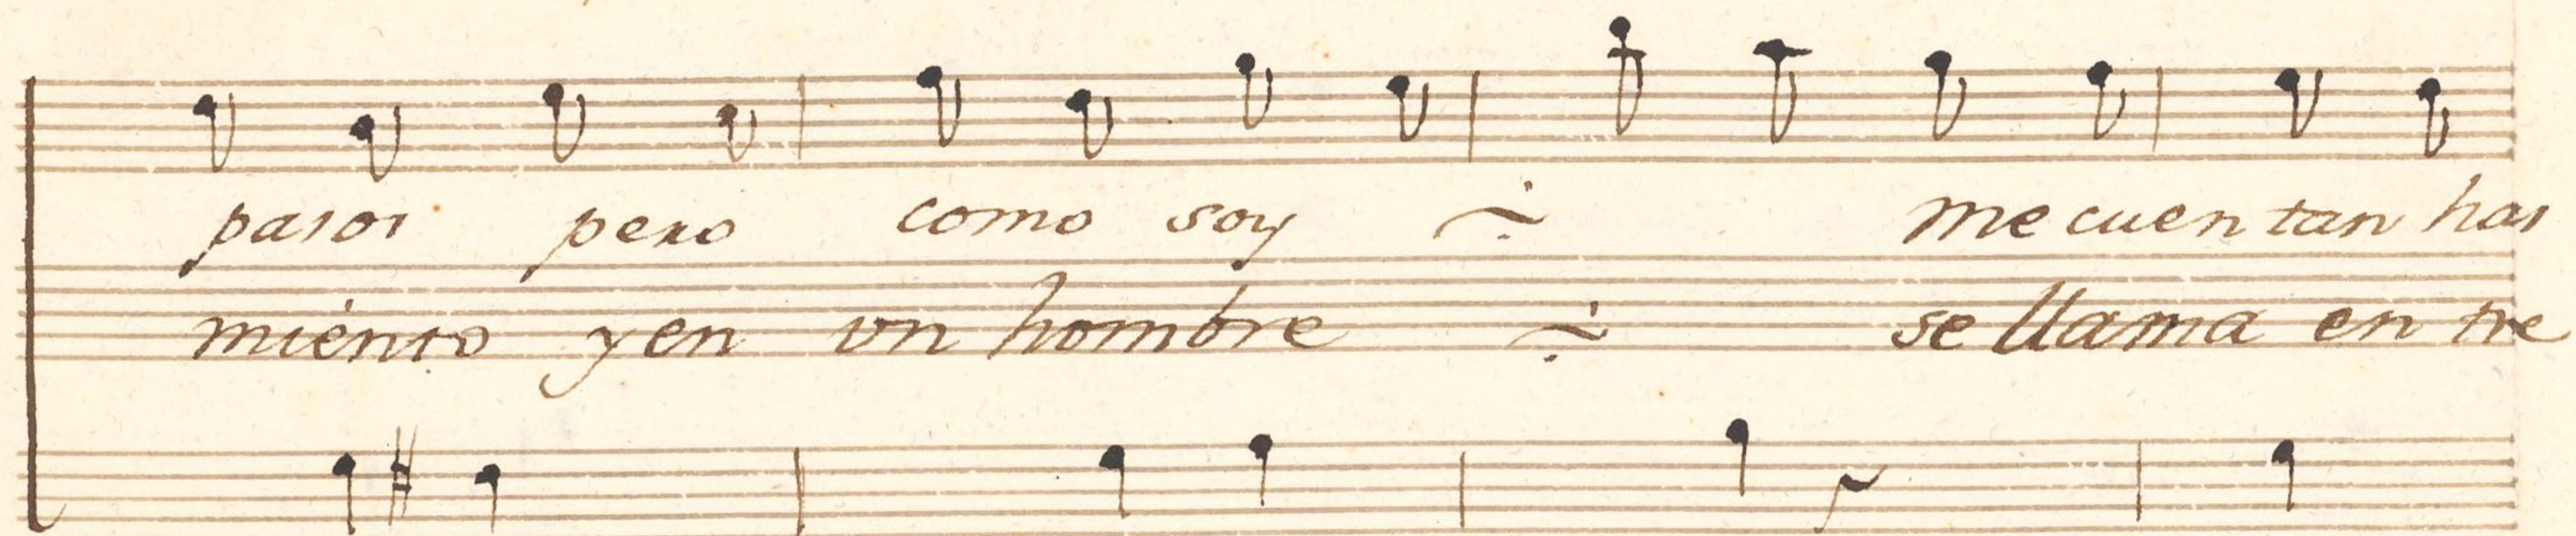 pasos pero como soy me cuentan has
miento y en vn hombre se llama en tre